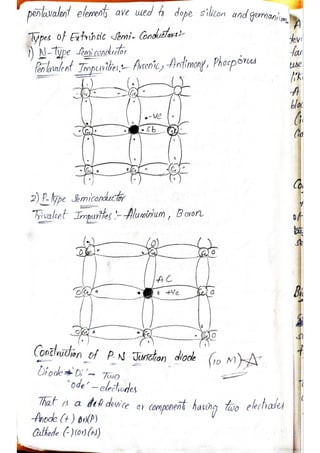 pentavalent elements are used to dope silicon and germanium
Types of Extrinsic Semi-Conductors:-
1) N-Type Semiconductor
Pentavalent Impurities:- Arsenic, Antimony, Phosporus
-ve
Sb
2) P-type Semiconductor
Trivalent Impurites:- Aluminium, Boron
AC
+ve
Construction of P.N Junction diode (10 M)-A
Diode → Di - Two
'ode' - electrodes
That is a device or component having two electrodes
Anode (+) or (P)
Cathode (-) (or) (N)